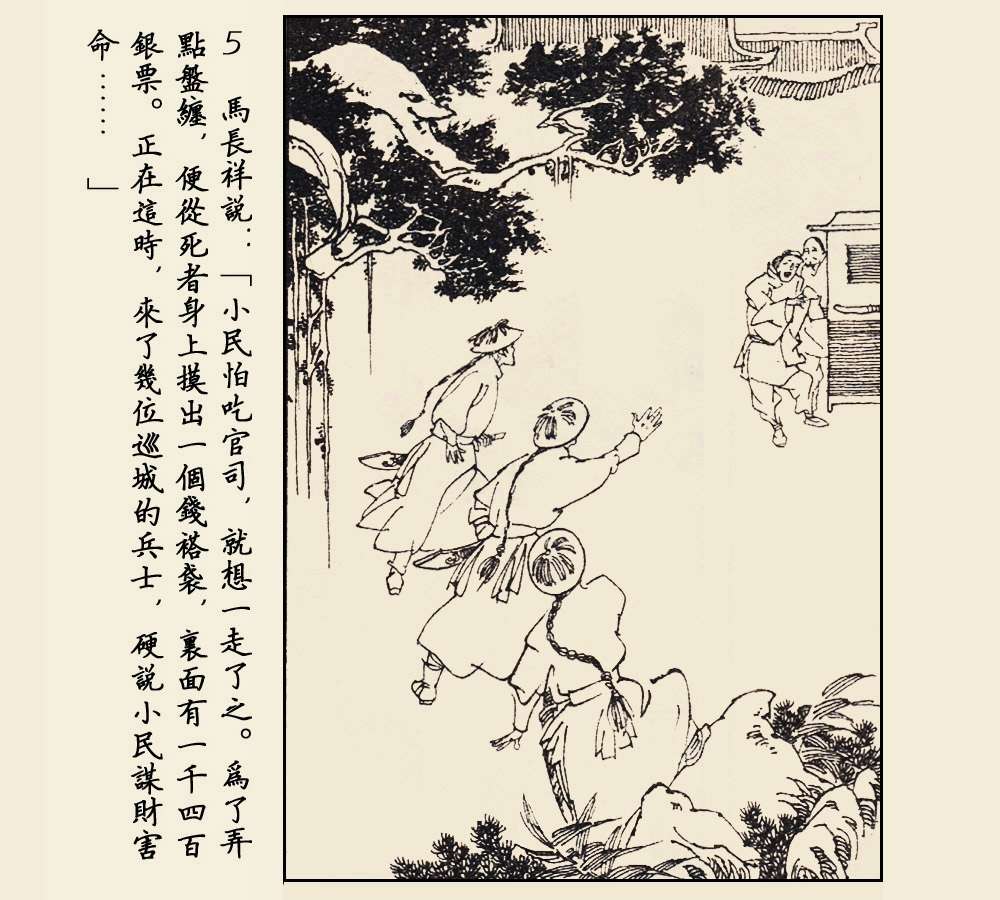 5 馬長祥説：「小民怕吃官司，就想一走了之。爲了弄
點盤纏，便從死者身上摸出一個錢褡袋，裏面有一千四百
銀票。正在這時，來了幾位巡城的兵士，硬説小民謀財害
命……」